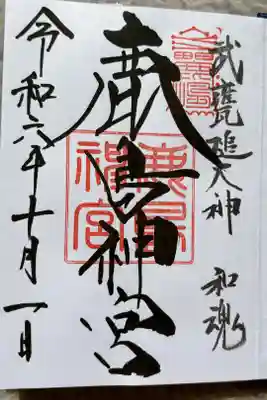 武甕槌大神 和魂
鹿島神宮
鹿島神宮
令和六年十月一日